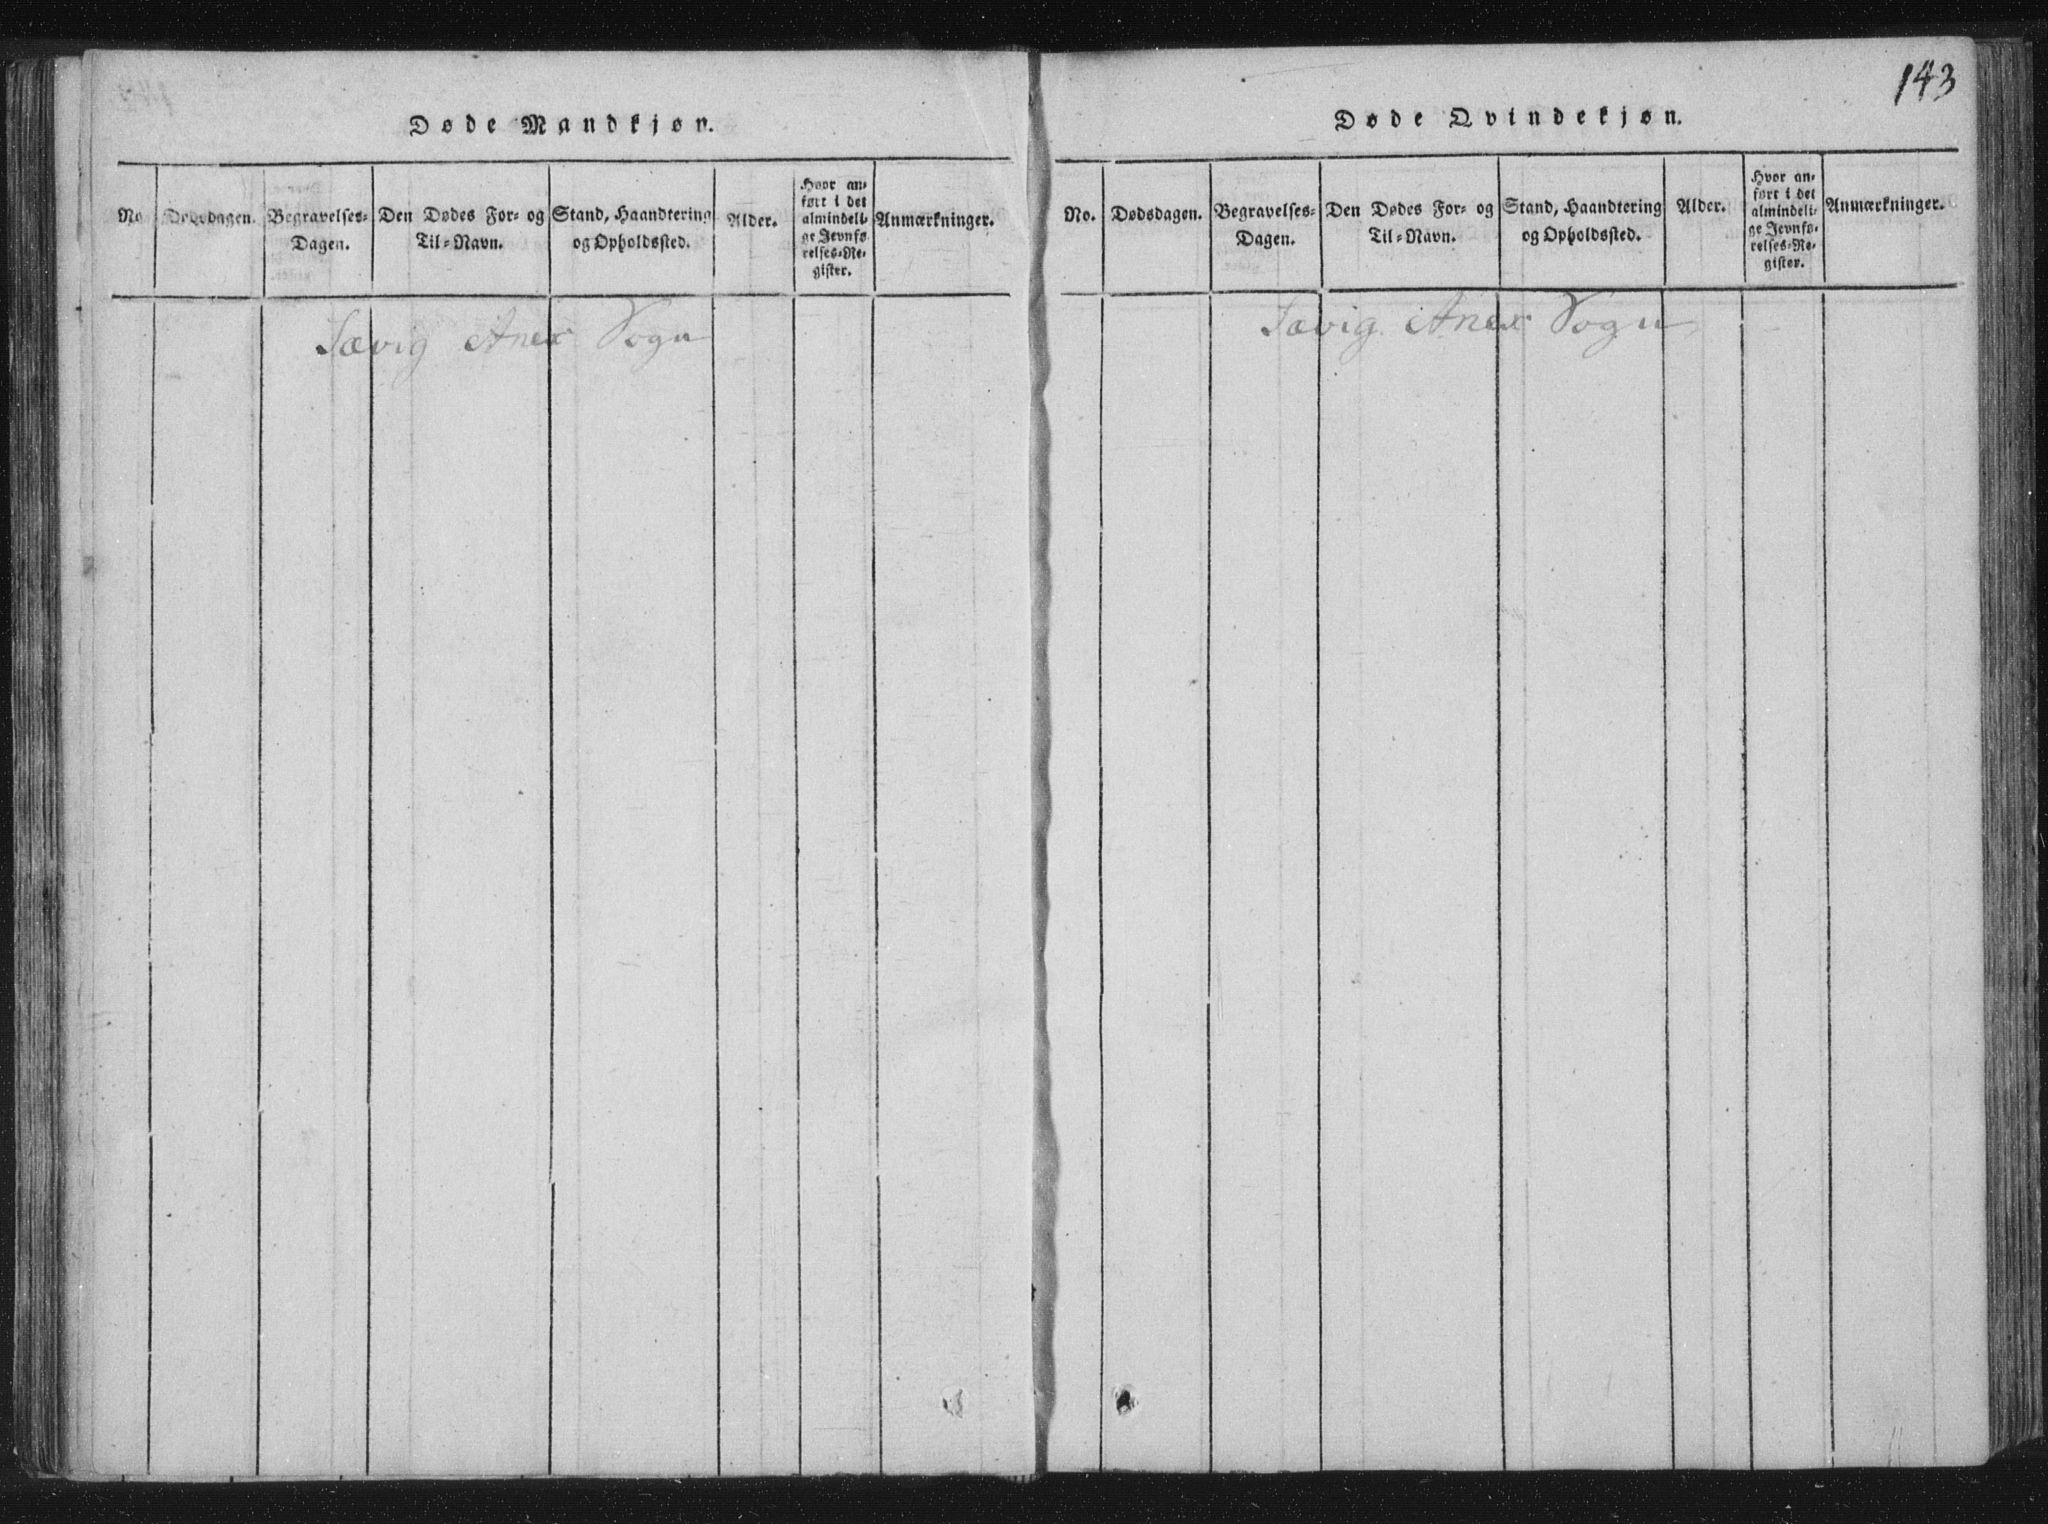 Døde Mandkjøn.
No.
Dødsdagen.
Begravelses-
Dagen.
Den Dødes For- og
Til-Navn.
Stand, Haandtering
og Opholdssted.
Alder.
Hvor an-
ført i det
almindeli-
ge Jevnfø-
relses-Re-
gister.
Anmærkninger.
Sævig Anex Sogn
143
Døde Qvindekjøn.
No.
Dødsdagen.
Begravelses-
Dagen.
Den Dødes For- og
Til-Navn.
Stand, Haandtering
og Opholdssted.
Alder.
Hvor an-
ført i det
almindeli-
ge Jevnfø-
relses-Re-
gister.
Anmærkninger.
Sævig Anex Sogn